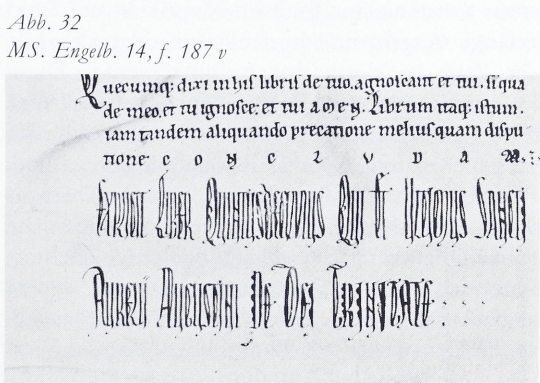 Abb. 32
MS. Engelb. 14, f. 187 v
Quecumq: dixi in his libris de tuo. agnoscant et tui. si qua
de meo. et tu ignosce: et tui amen. Librum itaq: istum.
iam tandem aliquando precatione melius. quam dispu
tione c o n c l u d a m.
Explicit Liber Quintusdecimus Qui Et Ultimus Sancti
Aurelii Augustini De Dei Trinitate